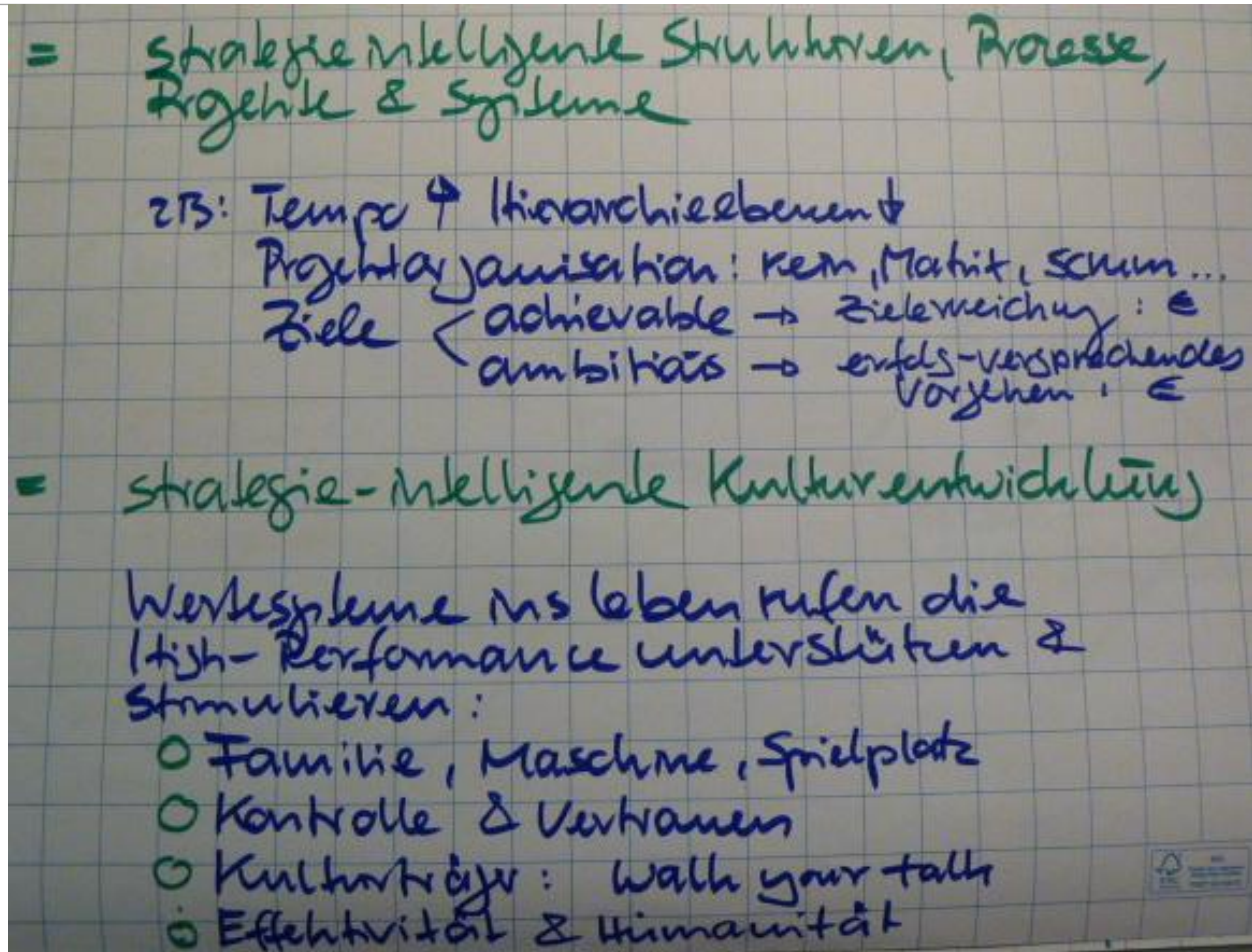 = strategieintelligente Strukturen, Prozesse,
Projekte & Systeme
zB: Tempo ↑ Hierarchieebenen ↓
Projektorganisation: rein, Matrix, scrum...
Ziele < achievable → Zielerreichung : €
ambitiös → erfolgs-versprechendes
Vorgehen : €
= strategie-intelligente Kulturentwicklung
Wertesysteme ins Leben rufen die
High-Performance unterstützen &
stimulieren:
O Familie, Maschine, Spielplatz
O Kontrolle & Vertrauen
O Kulturträger: walk your talk
O Effektivität & Humanität